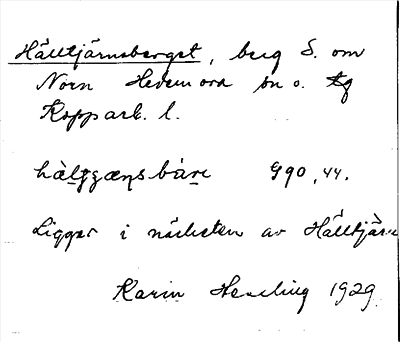 Hälltjärnsberget, berg S. om
Norn Hedemora sn o. tg
Kopparb. l.
hàlʒʒæɳsbàre 990, 44.
Ligger i närheten av Hälltjärn
Karin Hessling 1929